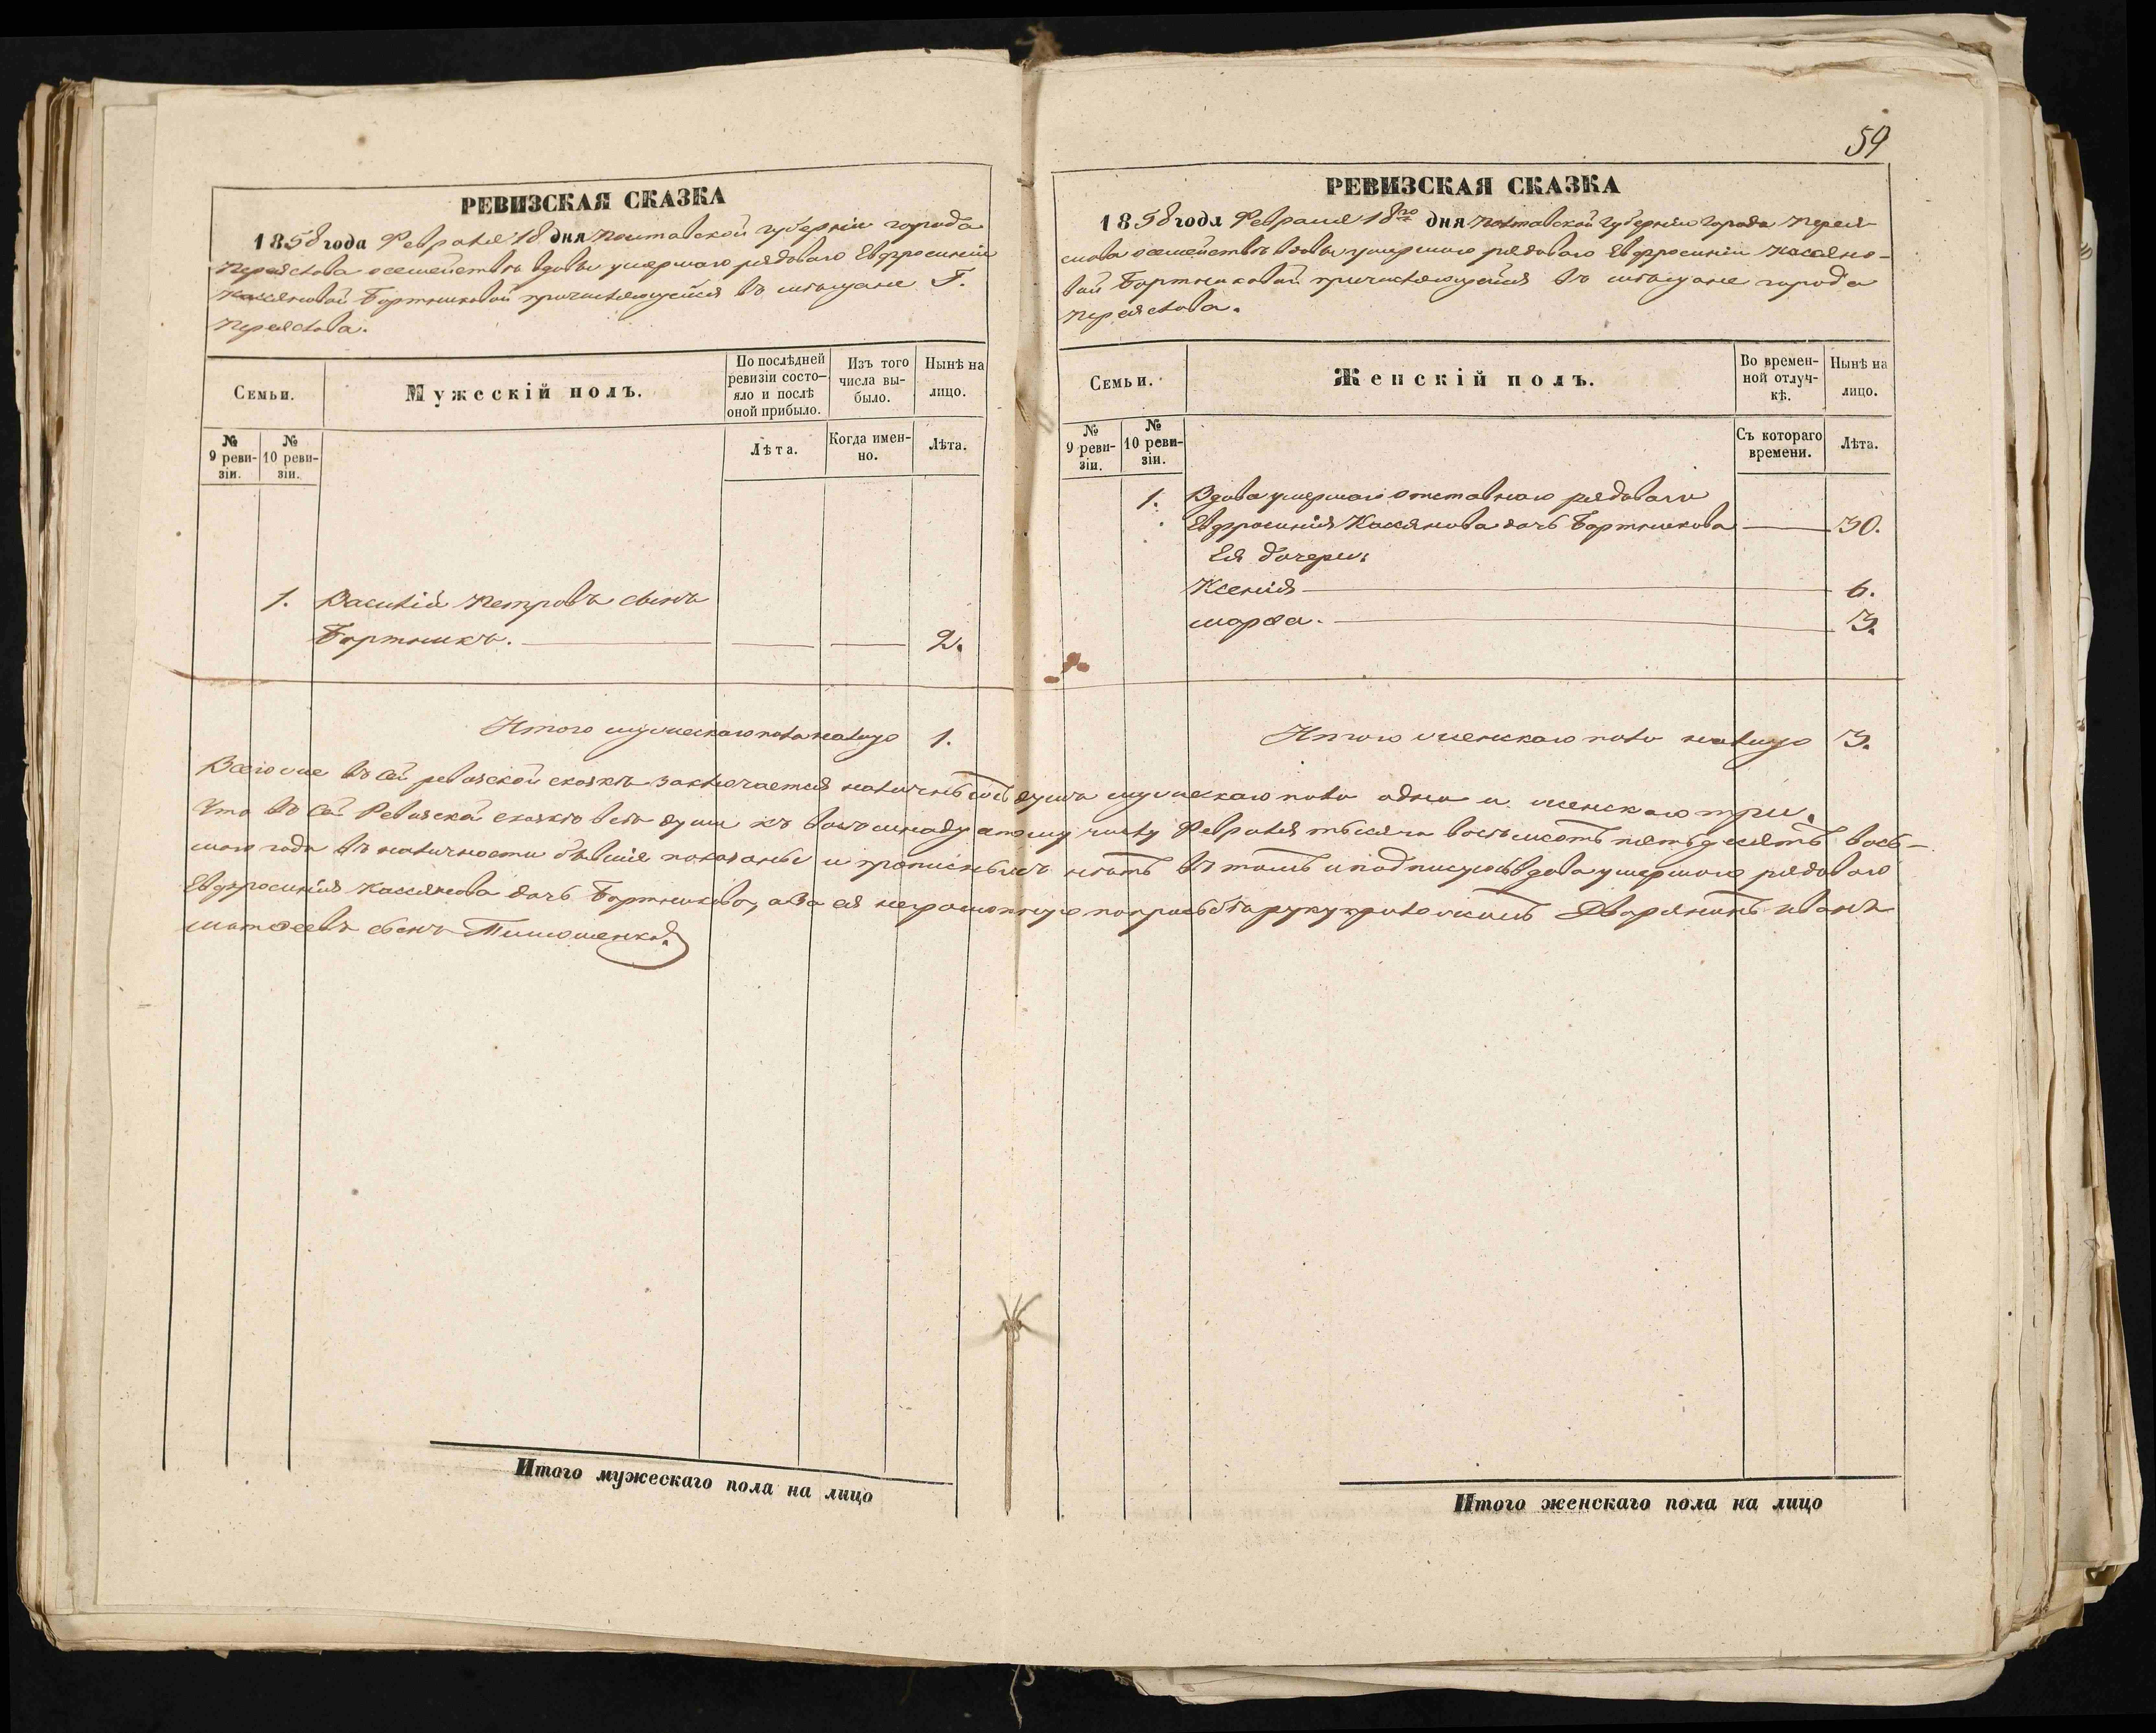 59
РЕВИЗСКАЯ СКАЗКА
1858 года Февраля 18 дня Полтавской губерніи города
Переяслова о семействѣ вдовы умершаго рядоваго Евфросиніи
Касяновой Бортниковой причисляющейся въ мѣщане Г.
Переяслова.
Семьи.
Мужескій полъ.
По послѣдней
ревизіи состо-
яло и послѣ
оной прибыло.
Изъ того
числа вы-
было.
Нынѣ на
лицо.
№
9 реви-
зіи.
№
10 реви-
зіи.
Лѣта.
Когда имен-
но.
Лѣта.
1. Василій Петровъ сынъ
Бортникъ. 2.
Итого мужескаго пола налицо 1.
РЕВИЗСКАЯ СКАЗКА
1858 года Февраля 18го дня Полтавской Губерніи Города Перея-
слова о семействѣ вдовы умершаго рядоваго Евфросиніи Касяно-
вой Бортниковой причисляющейся въ мѣщане города
Переяслова.
Семьи.
Женскій полъ.
Во времен-
ной отлуч-
кѣ.
Нынѣ на
лицо.
№
9 реви-
зіи.
№
10 реви-
зіи.
Съ котораго
времени.
Лѣта.
1. Вдова умершаго отставнаго рядоваго
Евфросинія Касянова дочь Бортникова 30.
Ея дочери:
Ксенія 6.
марѳа. 3.
Итого женскаго пола налицо 3.
Всего же въ сей ревизской сказкѣ заключается наличныхъ душъ мужескаго пола одна и женскаго три.
Что въ сей Ревизской сказкѣ всѣ души къ восемнадцатому числу Февраля тысяча восемьсотъ пятьдесятъ вось-
маго года въ наличности бывшія показаны и прописныхъ нѣтъ въ томъ и подписуюсь вдова умершаго рядоваго
Евфросинія Касянова дочь Бортникова, а за ея неграмотную по просьбѣ руку приложилъ Дворянинъ иванъ
матвеевъ сынъ Тимошенко
Итого мужескаго пола на лицо
Итого женскаго пола на лицо